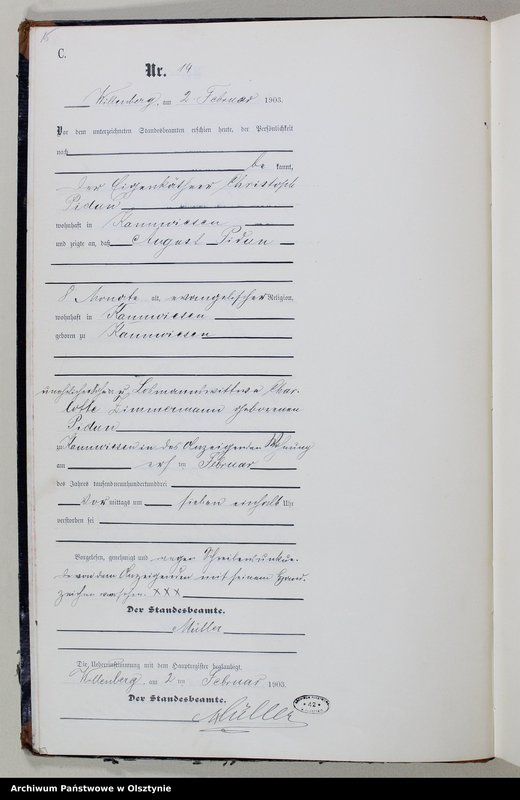 15
C.
Nr. 19
Willenberg, am 2. Februar 1903.
Vor dem unterzeichneten Standesbeamten erschien heute, der Persönlichkeit
nach
be kannt,
der Eigenkäthner Christoph
Pidun
wohnhaft in Kannwiesen
und zeigte an, daß August Pidun
8 Monate alt, evangelischer Religion,
wohnhaft in Kannwiesen
geboren zu Kannwiesen
unehelicher Sohn d. Losmannswittwe Char-
lotte Zimmermann geborenen
Pidun
zu Kannwiesen in des Anzeigenden Wohnung
am ersten Februar
des Jahres tausendneunhundertunddrei
Vor mittags um sieben einhalb Uhr
verstorben sei
Vorgelesen, genehmigt und wegen Schreibensunkun-
de von dem Anzeigenden mit seinem Hand-
zeichen versehen. XXX
Der Standesbeamte.
Müller
Die Uebereinstimmung mit dem Hauptregister beglaubigt.
Willenberg, am 2 ten Februar 1903.
Der Standesbeamte.
Müller
42
Archiwum Państwowe w Olsztynie